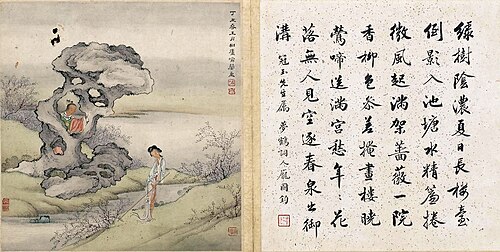 綠樹陰濃夏日長樓臺
倒影入池塘水精簾捲
微風起滿架薔薇一院
香柳色參差掩畫樓曉
鶯啼送滿宮愁年〻花
落無人見空逐春泉出御
溝
冠玉先生屬 夢鶴詞人龐國鈞
丁亥春王月